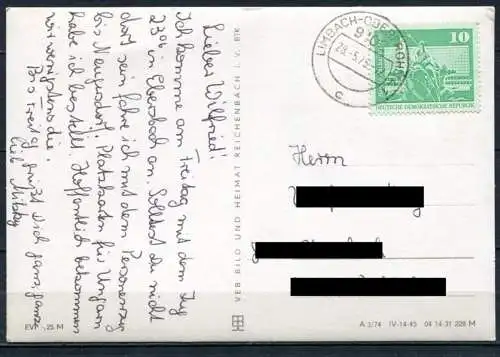 Lieber Wilfried!
Ich komme am Freitag mit dem Zug
23⁰⁰ in Ebersbach an. Solltest du nicht
dort sein fahre ich mit dem Personenzug
bis Neugersdorf. Platzkarten für Ungarn
habe ich bestellt. Hoffentlich bekommen
wir wenigstens die.
Bis Freitag grüßt dich ganz, ganz
lieb
VEB BILD UND HEIMAT REICHENBACH I. V. BTK
EVP -,25 M
LIMBACH-OBERFROHNA
10
DEUTSCHE DEMOKRATISCHE REPUBLIK
Herrn
A 3/74 IV-14-45 04 14 31 228 M